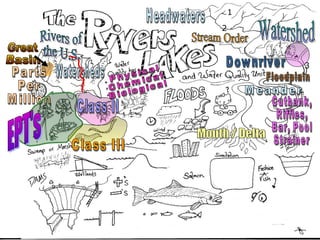 The
Rivers
Lakes
and Water Quality Unit
Headwaters
1
2
Stream Order
Watershed
Rivers of
the U.S.
Great
Basin
Parts
Per
Million
Watersheds
Water
Physical
Chemical
Biological
Downriver
Floodplain
Meander
Cutbank,
Riffles,
Bar, Pool
Strainer
Class II
FLOODS
EPT's
Class III
Mouth / Delta
Swamp or Marsh
Wetlands
DAMS
+'s
-'s
Salmon
Simulation
Fashion
a
Fish